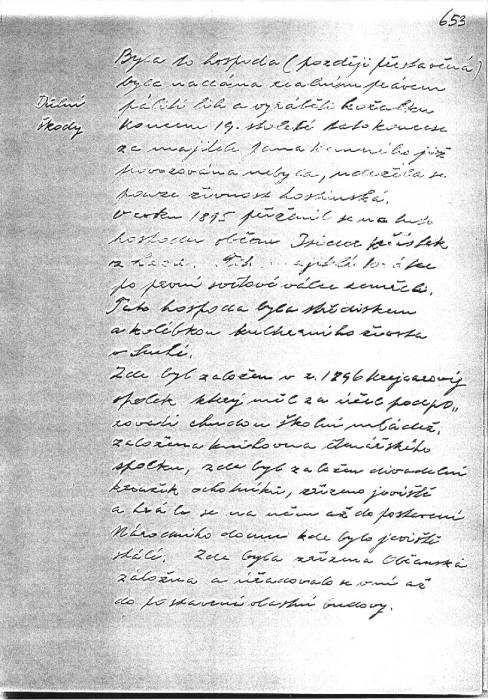 653
Důlní
škody
Byla to hospoda (později přestavěná)
byla nadána reálním právem
páliti líh a vyráběti kořalku
koncem 19. století tato koncese
za majitele Jana Kenného již
provozována nebyla, udržela se
pouze živnost hostinská.
V roku 1895 přiženil se na tuto
hospodu občan Isidor
z
po první světové válce zemřel.
Tato hospoda byla střediskem
a kolíbkou kulturního života
v Suché.
Zde byl založen v r. 1896 krejcarový
spolek který měl za účel podpo„
rovati chudou školní mládež.
založena knihovna čtenářského
spolku, zde byl založen divadelní
kroužek ochotníků, zřízeno jeviště
a hrálo se na něm až do postavení
Národního domu kde bylo jeviště
stálé. Zde byla zřízena Občanská
záložna a úřadovalo se v ní až
do postavení vlastní budovy.